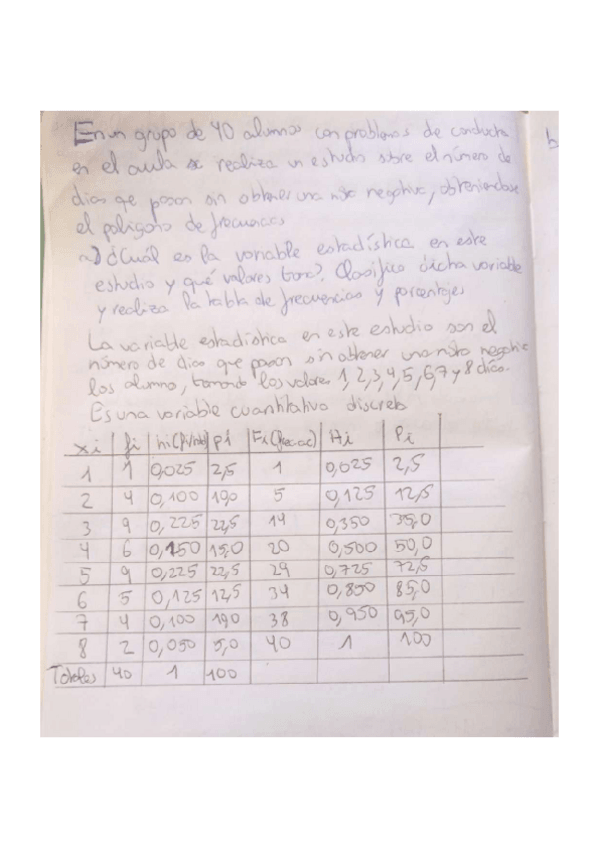 En un grupo de 40 alumnos con problemas de conducta
en el aula se realiza un estudio sobre el número de
dias que pasan sin obtener una nota negativa, obteniendose
el poligono de frecuencias
a) ¿Cuál es la variable estadística en este
estudio y qué valores toma? Clasifica dicha variable
y realiza la tabla de frecuencias y porcentajes
La variable estadística en este estudio son el
número de dias que pasan sin obtener una nota negativa
los alumno, tomando los valores 1, 2, 3, 4, 5, 6, 7 y 8 días.
Es una variable cuantitativa discreta
xi fi hi (fi/nto) pi Fi (frec ac) Hi Pi
1 1 0,025 2,5 1 0,025 2,5
2 4 0,100 10,0 5 0,125 12,5
3 9 0,225 22,5 14 0,350 35,0
4 6 0,150 15,0 20 0,500 50,0
5 9 0,225 22,5 29 0,725 72,5
6 5 0,125 12,5 34 0,850 85,0
7 4 0,100 10,0 38 0,950 95,0
8 2 0,050 5,0 40 1 100
Totales 40 1 100
b